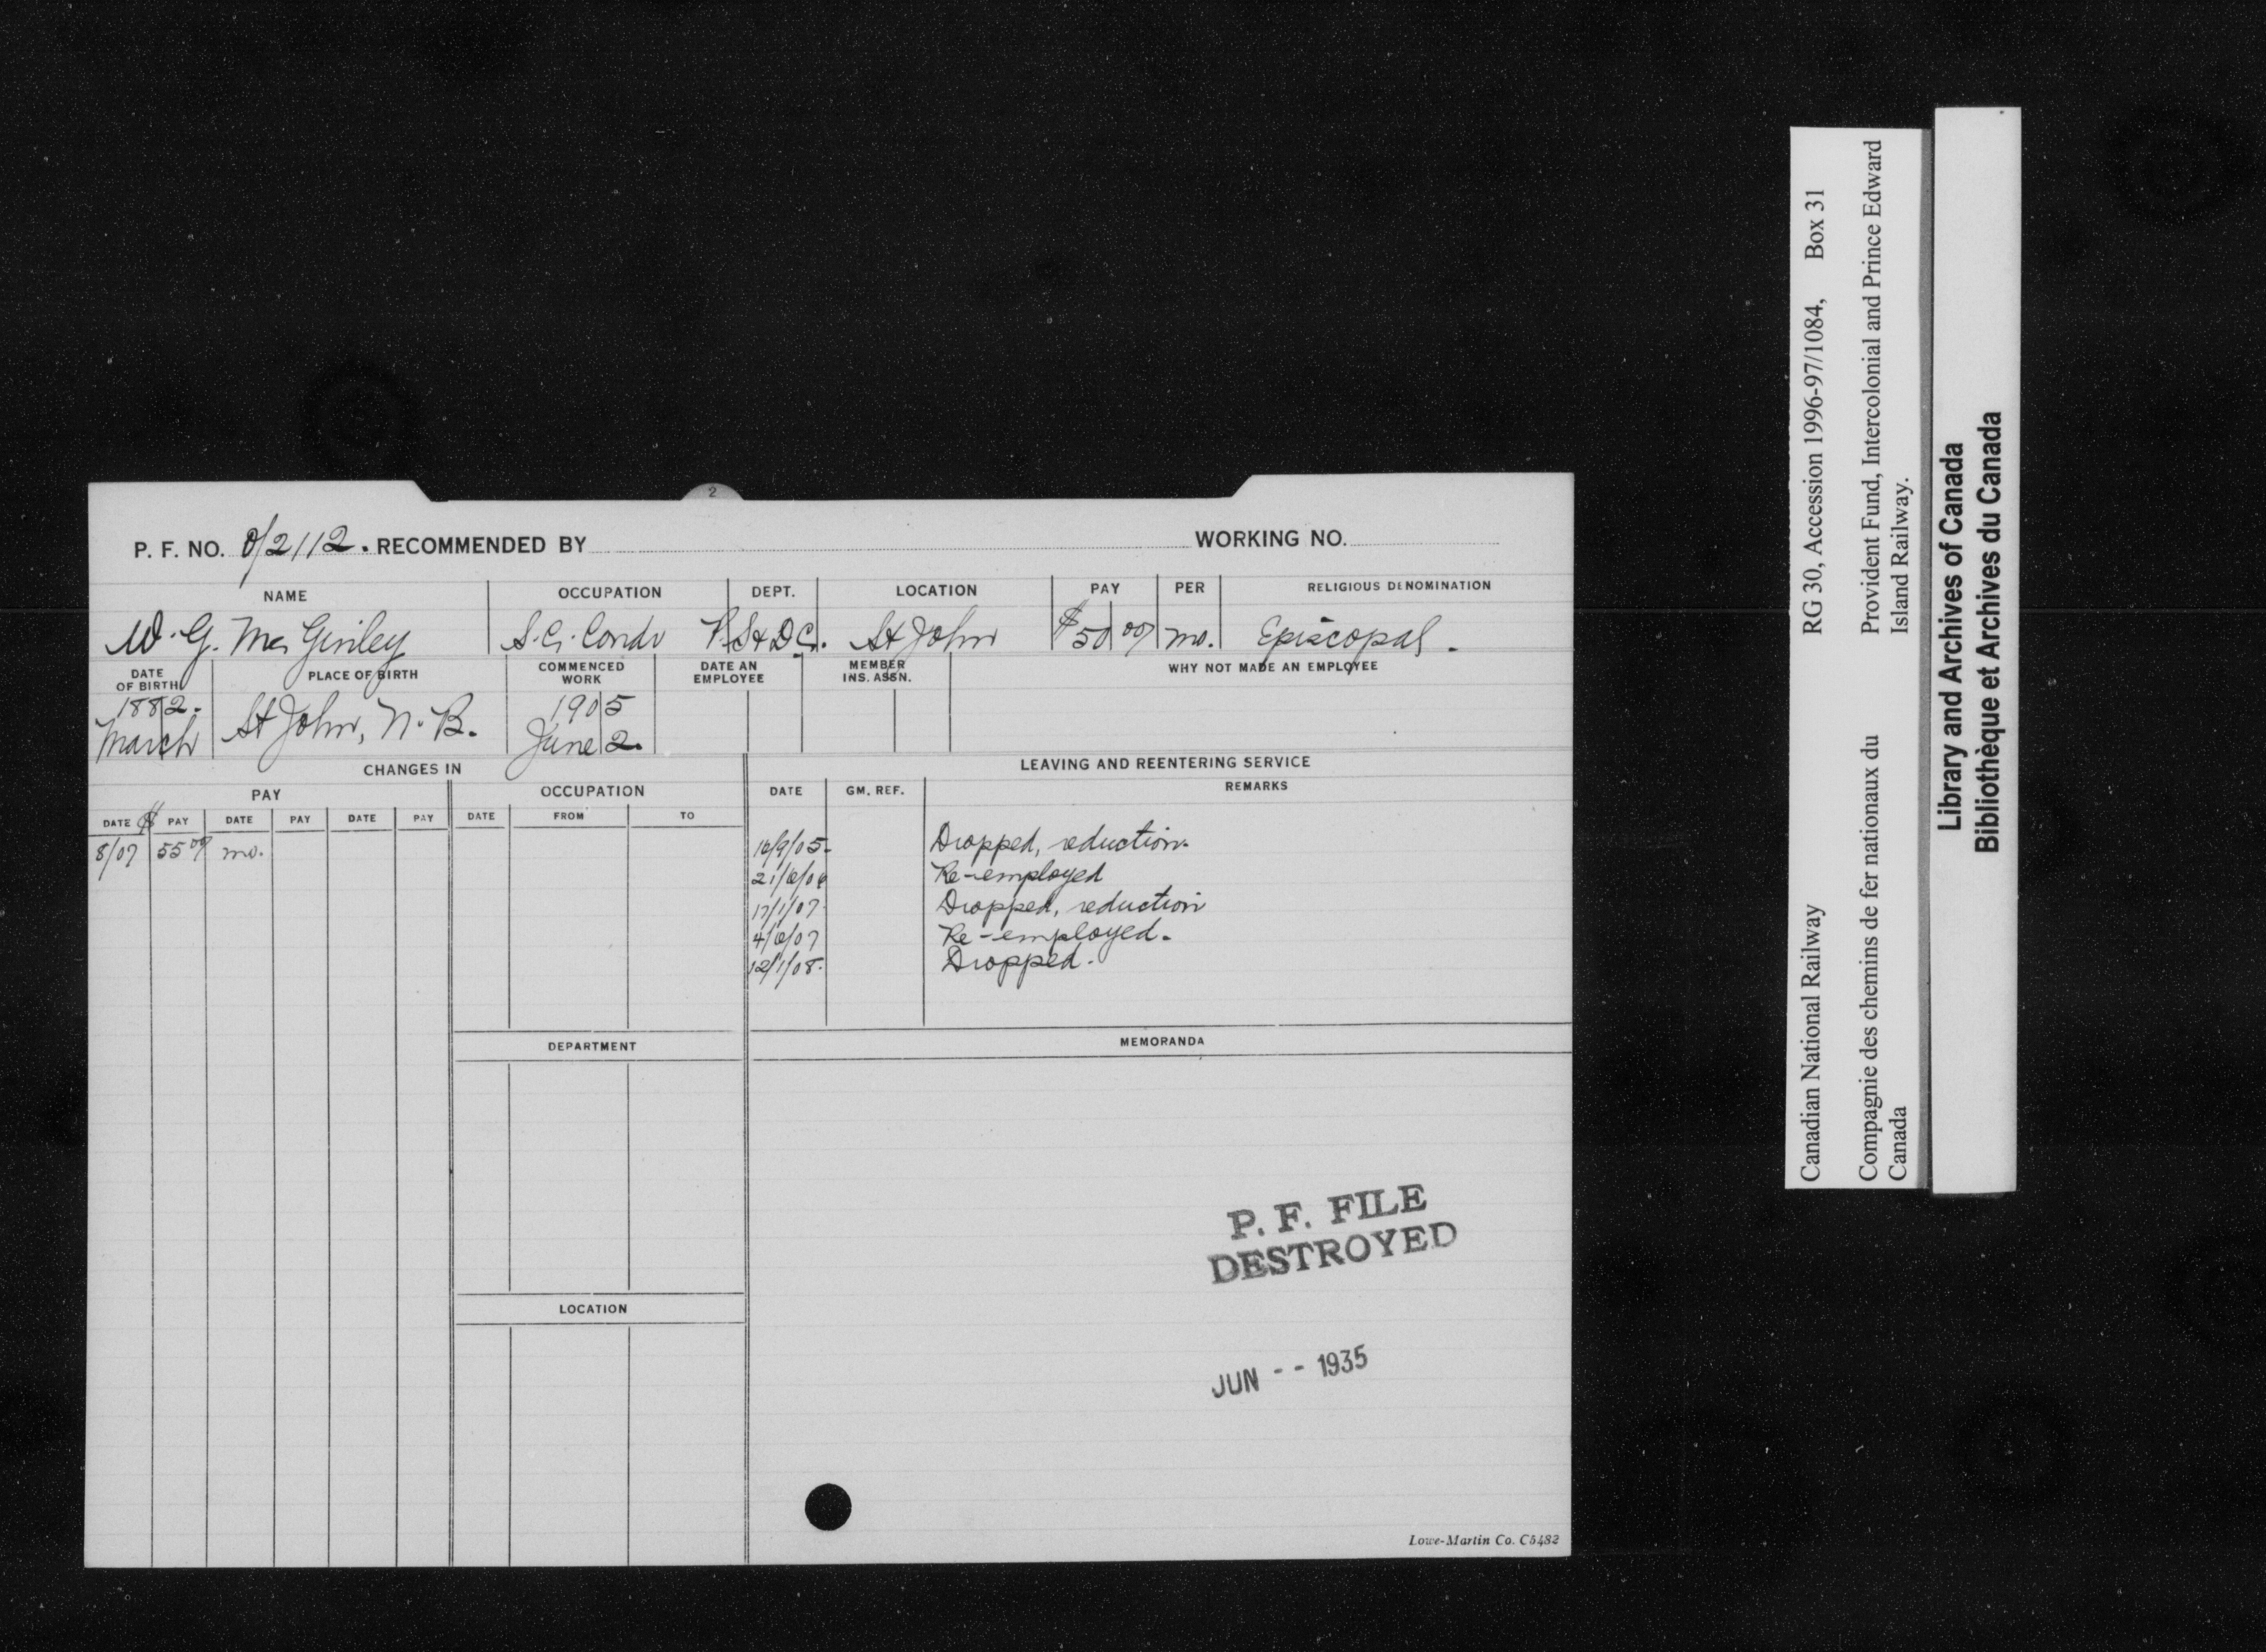 P. F. NO. 0/2112. RECOMMENDED BY WORKING NO.
NAME OCCUPATION DEPT. LOCATION PAY PER RELIGIOUS DENOMINATION
W. G. McGinley S.C. Condr P.S.&D.C. St John $50 00 mo. Episcopal.
DATE OF BIRTH PLACE OF BIRTH COMMENCED WORK DATE AN EMPLOYEE MEMBER INS. ASSN. WHY NOT MADE AN EMPLOYEE
1882. March St John, N.B. 1905 June 2.
CHANGES IN LEAVING AND REENTERING SERVICE
PAY OCCUPATION DATE GM. REF. REMARKS
DATE $ PAY DATE PAY DATE PAY DATE FROM TO
8/07 55 00 mo.
16/9/05. Dropped, reduction.
21/6/06 Re-employed
17/1/07. Dropped, reduction
4/6/07 Re-employed.
12/1/08. Dropped.
DEPARTMENT MEMORANDA
LOCATION
P. F. FILE
DESTROYED
JUN -- 1935
Lowe-Martin Co. C5482
2
Canadian National Railway RG 30, Accession 1996-97/1084, Box 31
Compagnie des chemins de fer nationaux du Provident Fund, Intercolonial and Prince Edward
Canada Island Railway.
Library and Archives of Canada
Bibliothèque et Archives du Canada